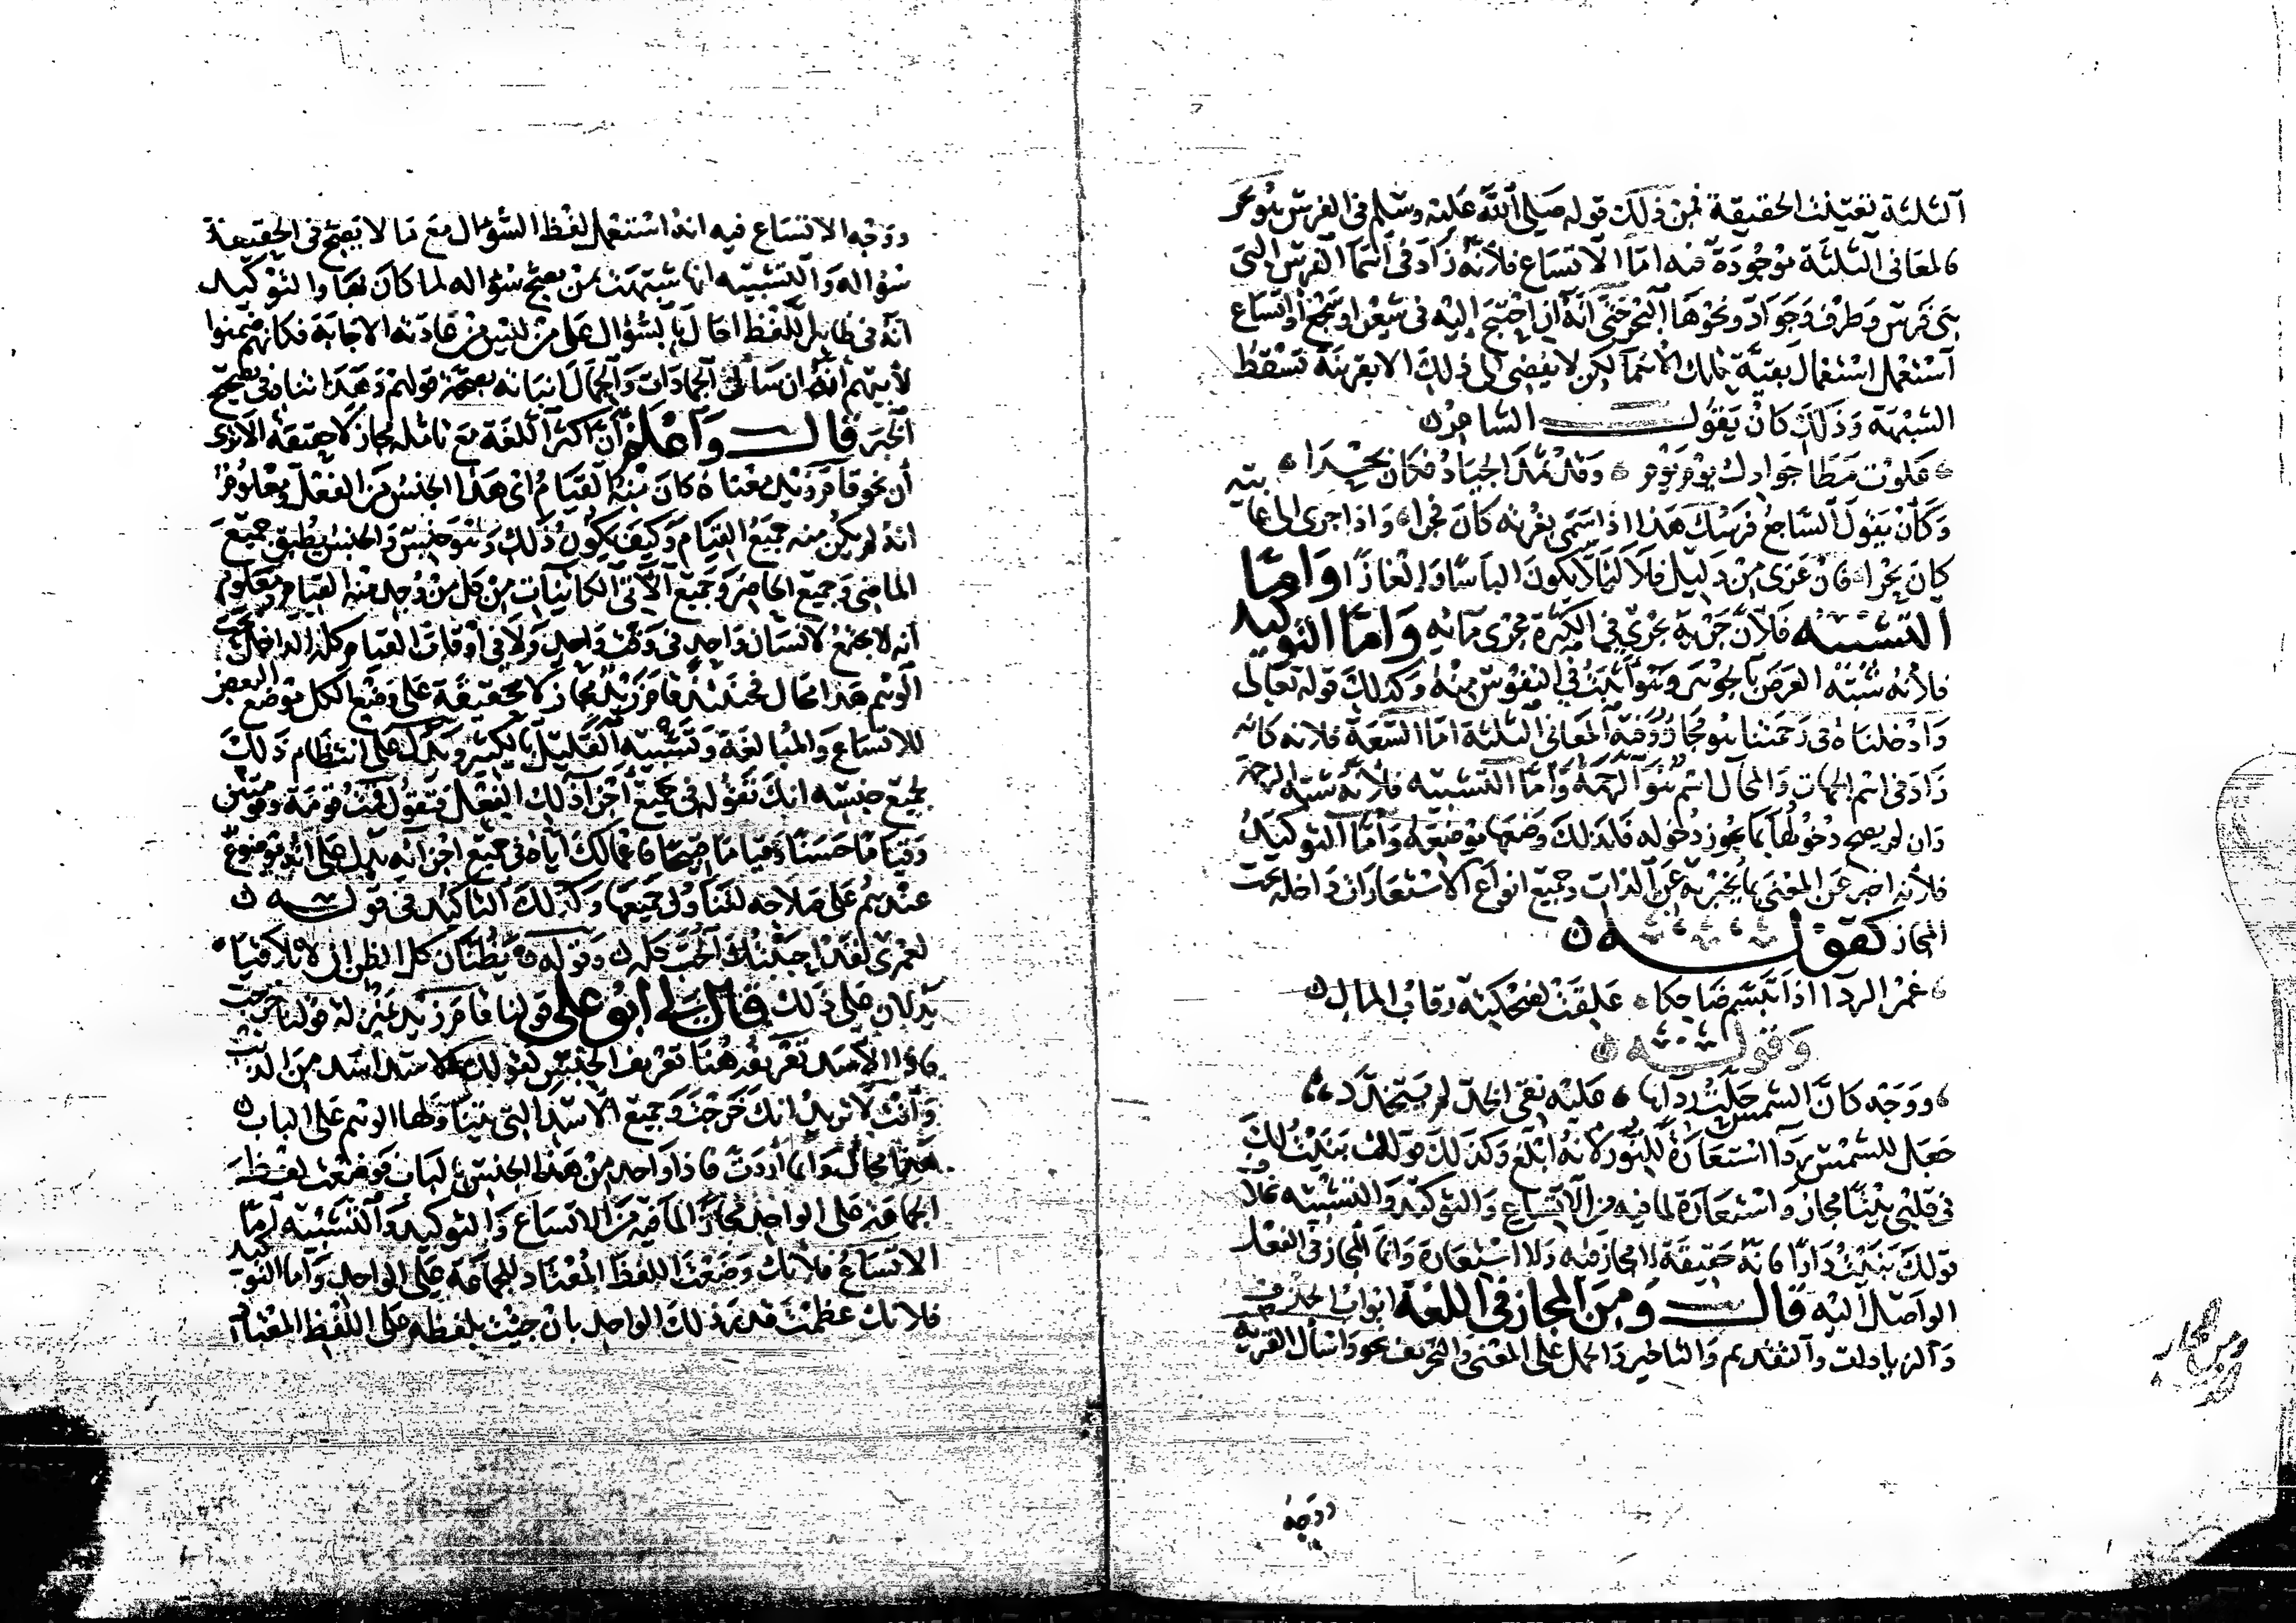 الثلثة تعينت الحقيقة فمن ذلك قوله صلى الله عليه وسلم في الفرس هو بحر
فالمعاني الثلثة موجودة فيه اما الاتساع فلانه زاد في اسما الفرس التي
هي فرس وطرف وجواد ونحوها البحر حتى انه ان احتيج اليه في شعر او سجع او اتساع
استعمل استعمال بقية تلك الاسما لكن لا يفضى الى ذلك الا بقرينة تسقط
الشبهة وذلك كان يقول الشاعر
علوت مطا جوادك يوم يوم وقد ثمد الجياد فكان بحرا
وكان يقول الساجع فرسك هذا اذا سمى بغرته كان فجرا واذا جرى الى غايته
كان بحرا فان عرى من دليل فلا ليلا يكون الباسا والغازا واما
التشبيه فلان جريه يجري في الكثرة مجرى مائه واما التوكيد
فلانه شبه العرض بالجوهر وهو اثبت في النفوس منه وكذلك قوله تعالى
وادخلناه في رحمتنا هو مجاز وفيه المعاني الثلثة اما السعة فلانه كانه
زاد في اسم الجهات والمحال اسم هو الرحمة واما التشبيه فلانه شبه الرحمة
وان لم يصح دخولها بما يجوز دخوله فلذلك وضعها موضعه واما التوكيد
فلانه اخبر عن المعنى بما يخبر به عن الذات وجميع انواع الاستعارات داخلة تحت
المجاز كقوله
غمر الردا اذا تبسم ضاحكا علقت لضحكته رقاب المال
وقوله
ووجه كان الشمس حلت رداها عليه نقي الخد لم يتخدد
جعل للشمس ردا استعارة للنور لانه ابلغ وكذلك قولك بنيت لك
في قلبي بيتا مجاز واستعارة لما فيه من الاتساع والتوكيد والتشبيه بخلاف
قولك بنيت دارا فانه حقيقة لا مجاز فيه ولا استعارة وانما المجاز في الفعل
الواصل اليه قال ومن المجاز في اللغة ابواب الحذف
والزيادات والتقديم والتاخير والحمل على المعنى والتحريف نحو واسال القرية
ووجه
ووجه الاتساع فيه انه استعمل لفظ السؤال مع ما لا يصح في الحقيقة
سؤاله والتشبيه انها شبهت بمن يصح سؤاله لما كان بها والتوكيد
انه في ظاهر اللفظ احال بالسؤال على من ليس من عادته الاجابة فكانهم ضمنوا
لابيهم انه ان سال الجمادات والجمال انبانه بصحة قولهم وهذا تناه في تصحيح
الخبر قال واعلم ان اكثر اللغة مع تامله مجاز لا حقيقة الا ترى
ان نحو قام زيد معناه كان منه القيام اي هذا الجنس من الفعل ومعلوم
انه لم يكن منه جميع القيام وكيف يكون ذلك وهو جنس والجنس يطبق جميع
الماضي وجميع الحاضر وجميع الآتي الكائنات من كل من وجد منه القيام ومعلوم
انه لا يجتمع لانسان واحد في وقت واحد ولا في اوقات القيام كله الداخل تحت
الوهم هذا محال فحينئذ قام زيد مجاز لا حقيقة على وضع الكل موضع البعض
للاتساع والمبالغة وتشبيه القليل بالكثير ويدل على انتظام ذلك
لجميع جنسه انك تقوله في جميع اجزا ذلك الفعل فتقول قمت قومة وقومتين
وقياما حسنا وقياما قبيحا فاعمالك اياه في جميع اجزائه يدل على انه موضوع
عندهم على صلاحه لتناول جميعها وكذلك التاكيد في قوله
لعمري لقد احببتك الحب كله وقوله يظنان كل الظن ان لا تلاقيا
يدلان على ذلك قال لي ابو علي قولنا قام زيد بمنزلة قولنا خرجت
فاذا الاسد تعريفه هنا تعريف الجنس كقولك الاسد اشد من الذيب
وانت لا تريد انك خرجت وجميع الاسد التي يتناولها الوهم على الباب
هذا محال وانما اردت فاذا واحد من هذا الجنس بالباب فوضعت لفظ
الجماعة على الواحد مجازا لما فيه من الاتساع والتوكيد والتشبيه اما
الاتساع فلانك وضعت اللفظ المعتاد للجماعة على الواحد واما التوكيد
فلانك عظمت قدر ذلك الواحد بان جيت بلفظه على اللفظ المعتاد